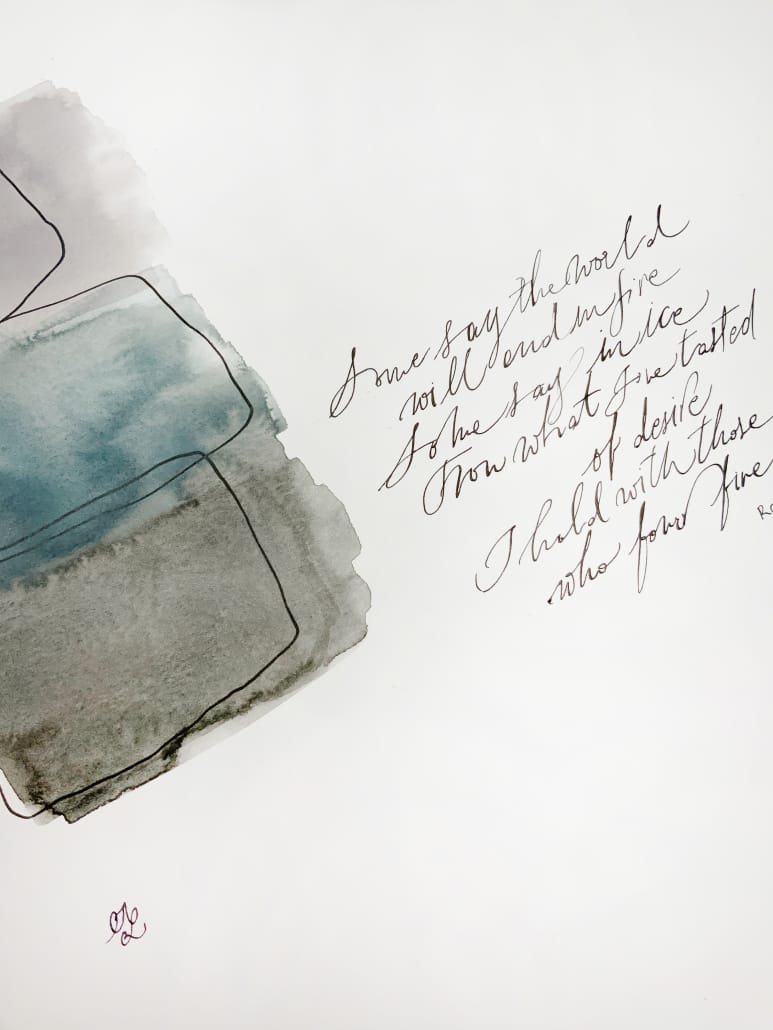 Some say the world
will end in fire
Some say in ice
From what I've tasted
of desire
I hold with those
who favor fire